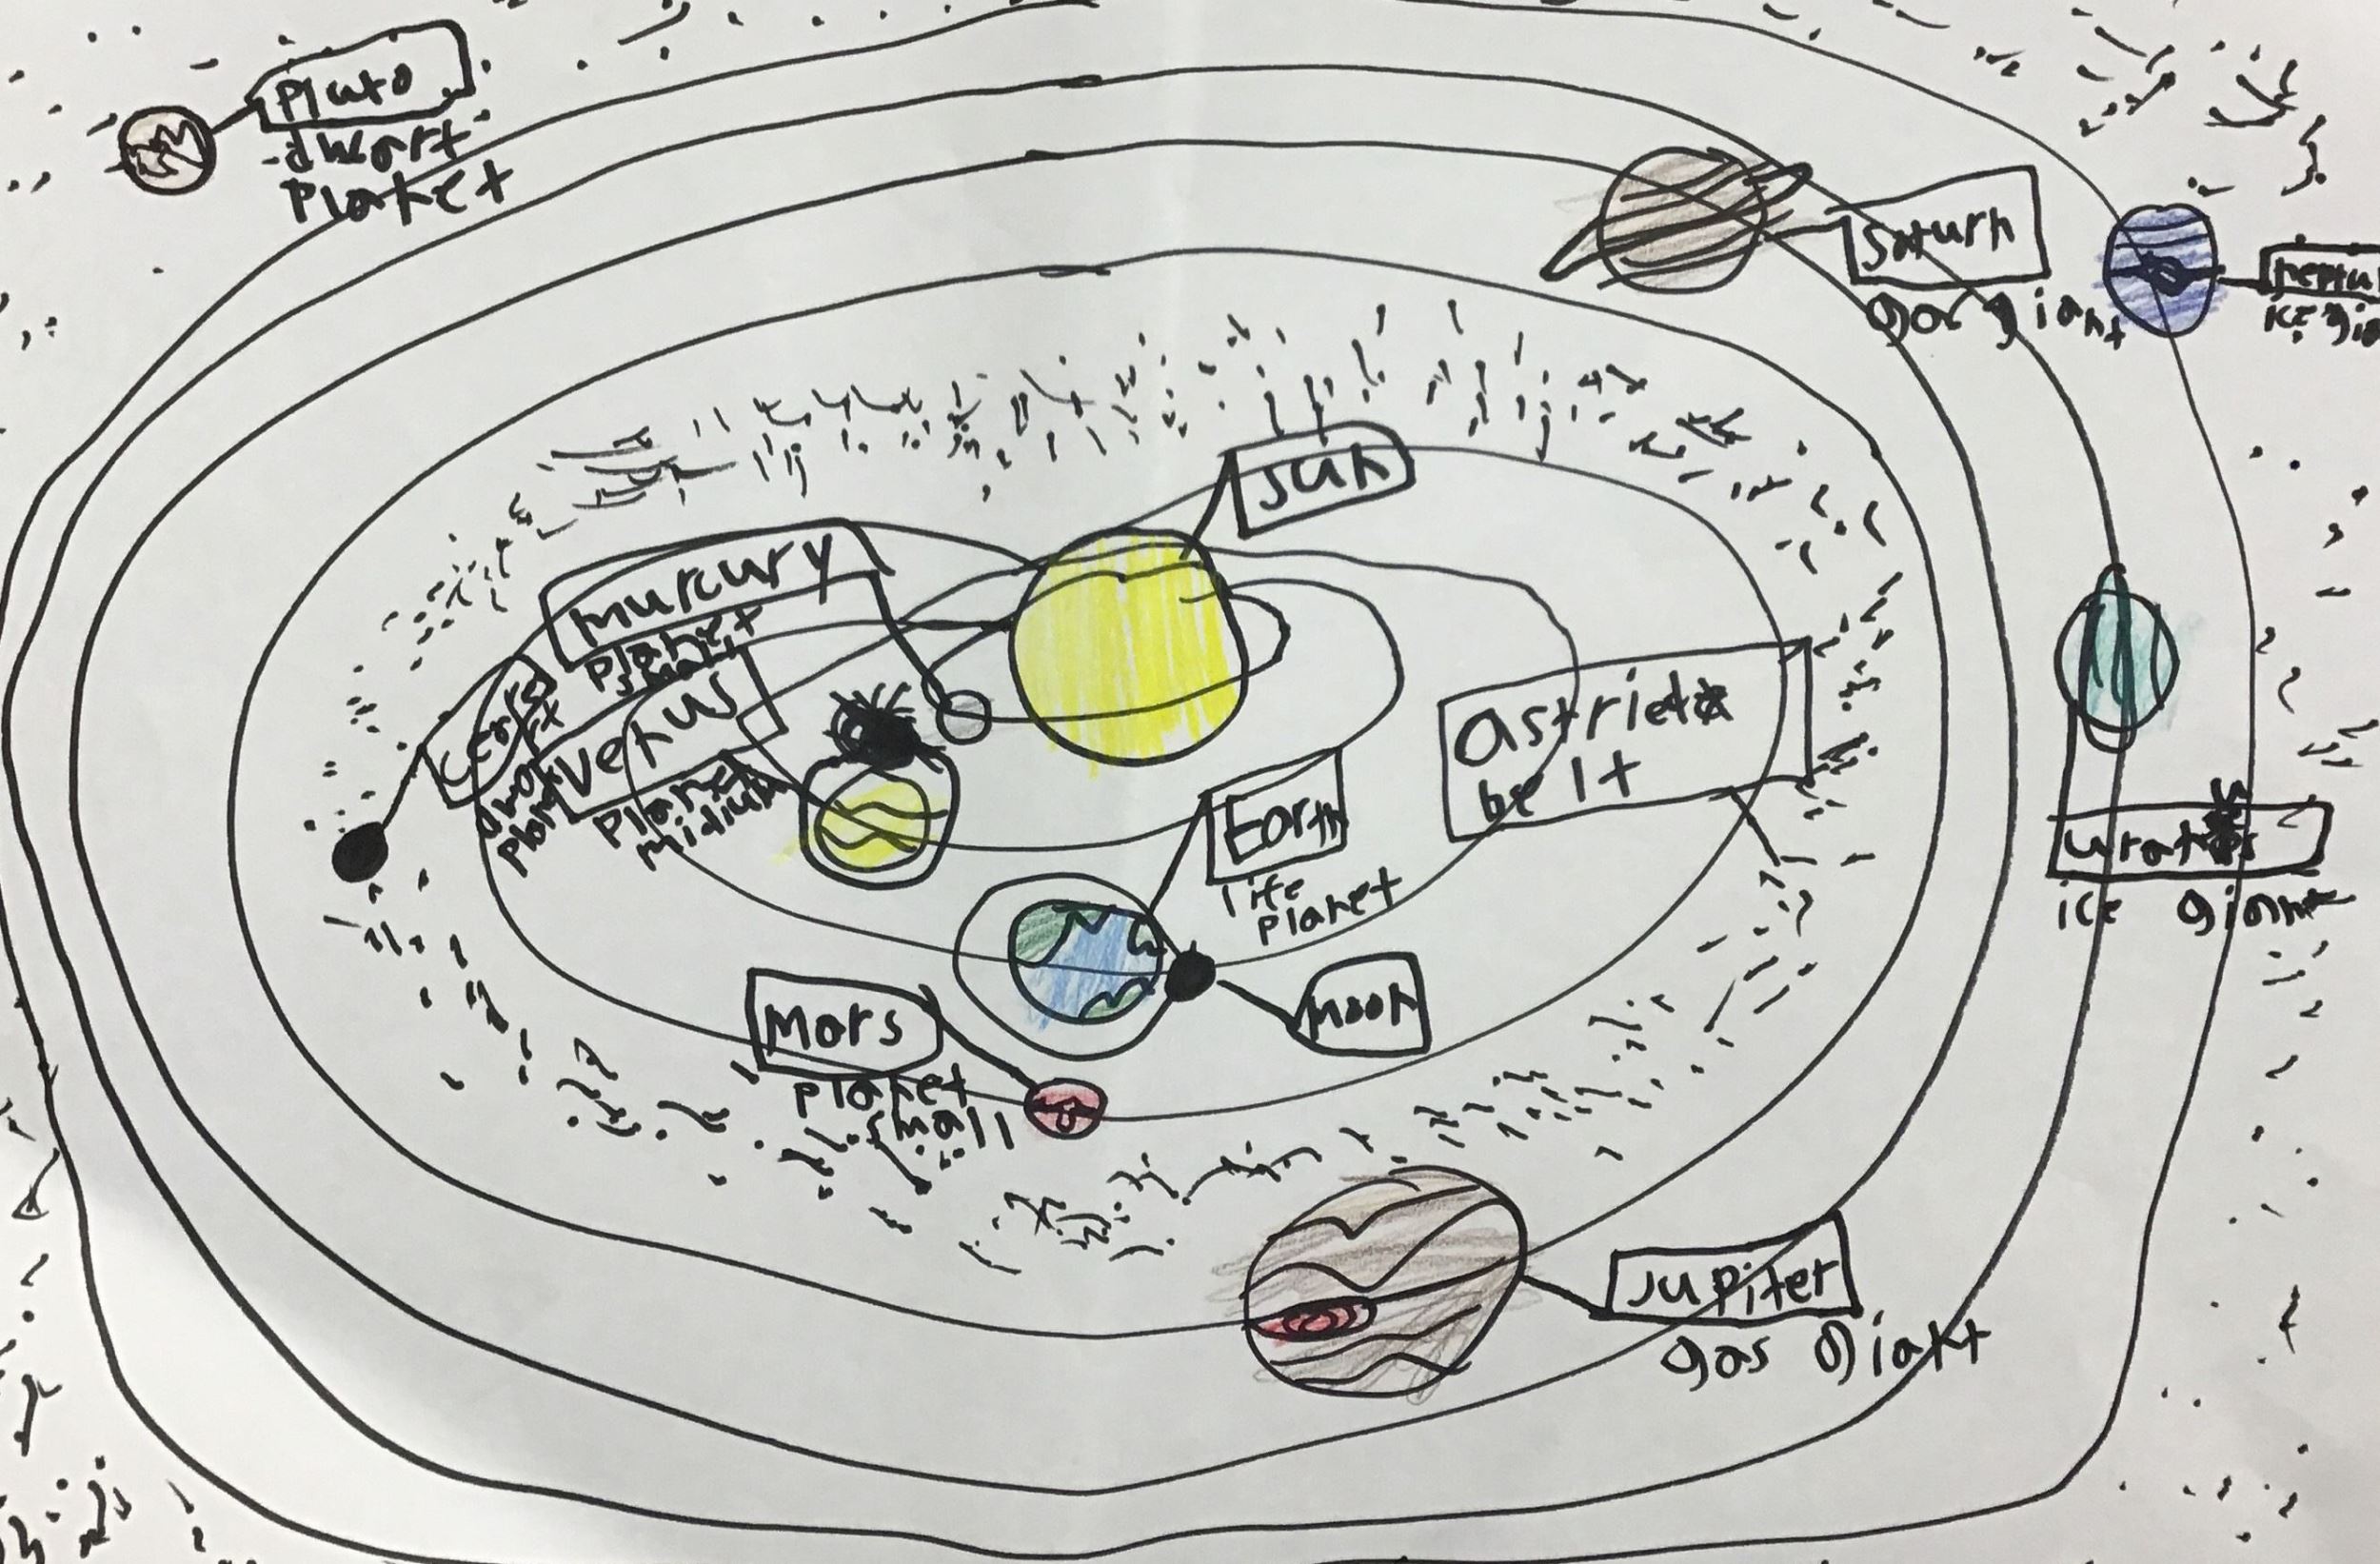 Pluto
dwarf
Planet
Saturn
gas giant
neptu
ice gia
Sun
murcury
planet
small
Ceres
Venus
planet
midium
astrieta
belt
Earth
life
planet
moon
Mars
planet
small
uranus
ice giant
Jupiter
gas giant